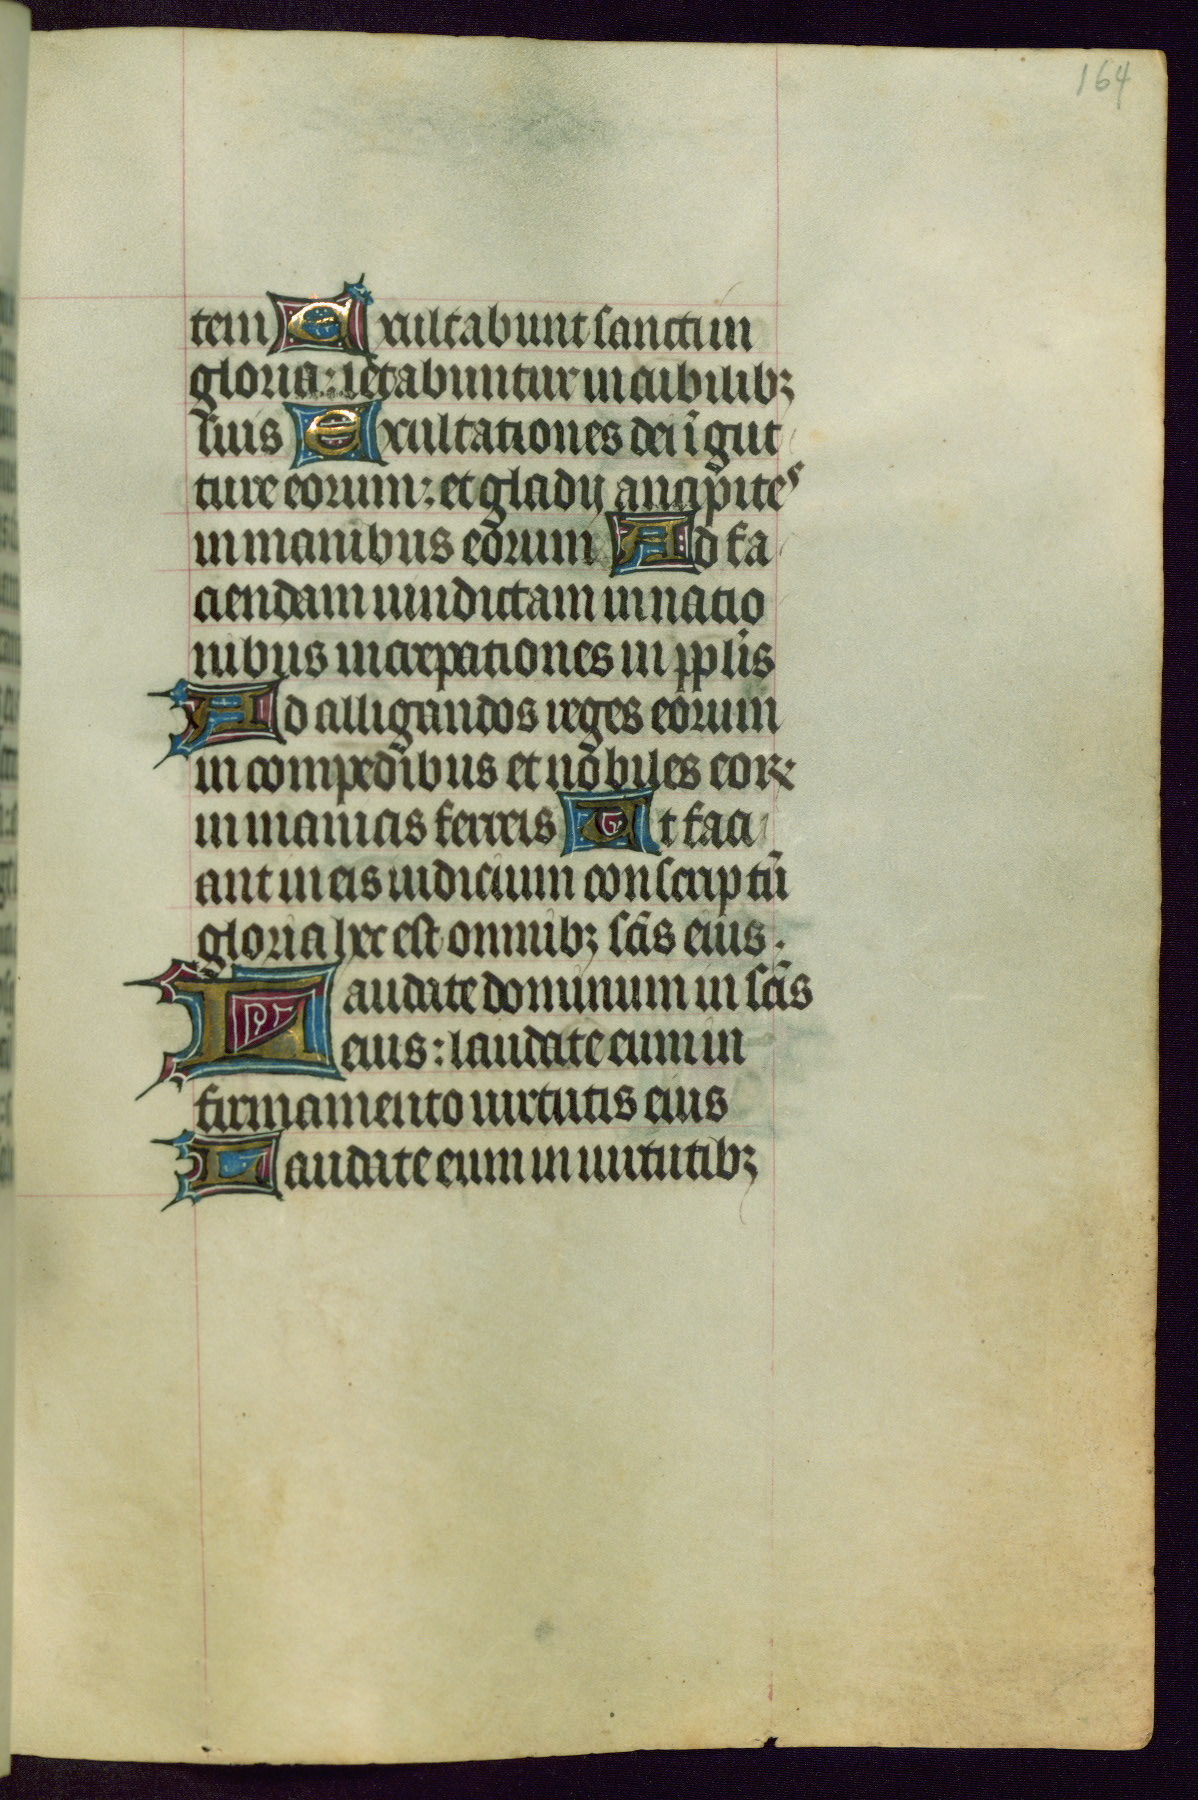 164
tem Exultabunt sancti in
gloria: letabuntur in cubilibꝫ
suis Exultationes dei ī gut
ture eorum: et gladij ancipites
in manibus eorum Ad fa
ciendam uindictam in natio
nibus increpationes in ppl̄is
Ad alligandos reges eorum
in compedibus et nobiles eoꝝ
in manicis ferreis Ut faci
ant in eis iudicium conscriptū
gloria hec est omnibꝫ scīs eius.
Laudate dominum in scīs
eius: laudate eum in
firmamento uirtutis eius
Laudate eum in uirtutibꝫ